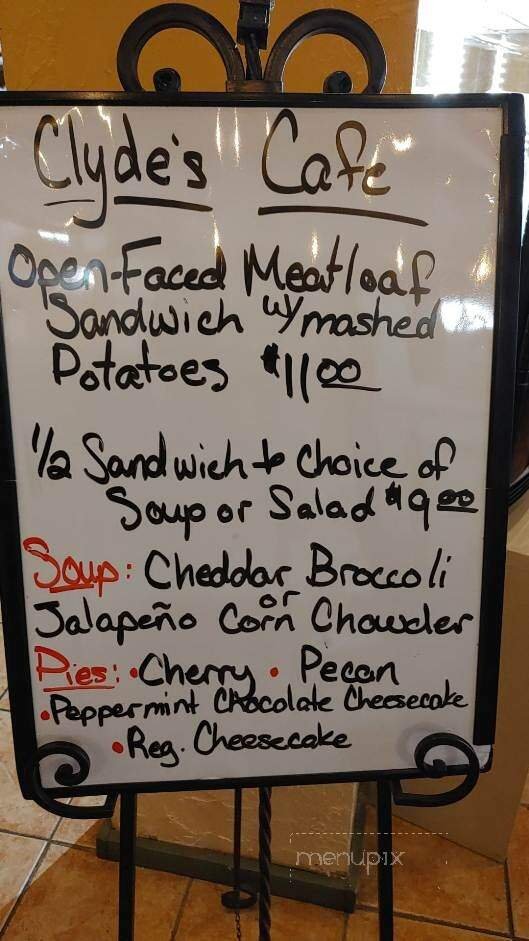 Clyde's Cafe
Open-Faced Meatloaf
Sandwich w/ mashed
Potatoes $11.00
1/2 Sandwich + Choice of
Soup or Salad $9.00
Soup: Cheddar Broccoli
or
Jalapeño Corn Chowder
Pies: • Cherry • Pecan
• Peppermint Chocolate Cheesecake
• Reg. Cheesecake
menupix